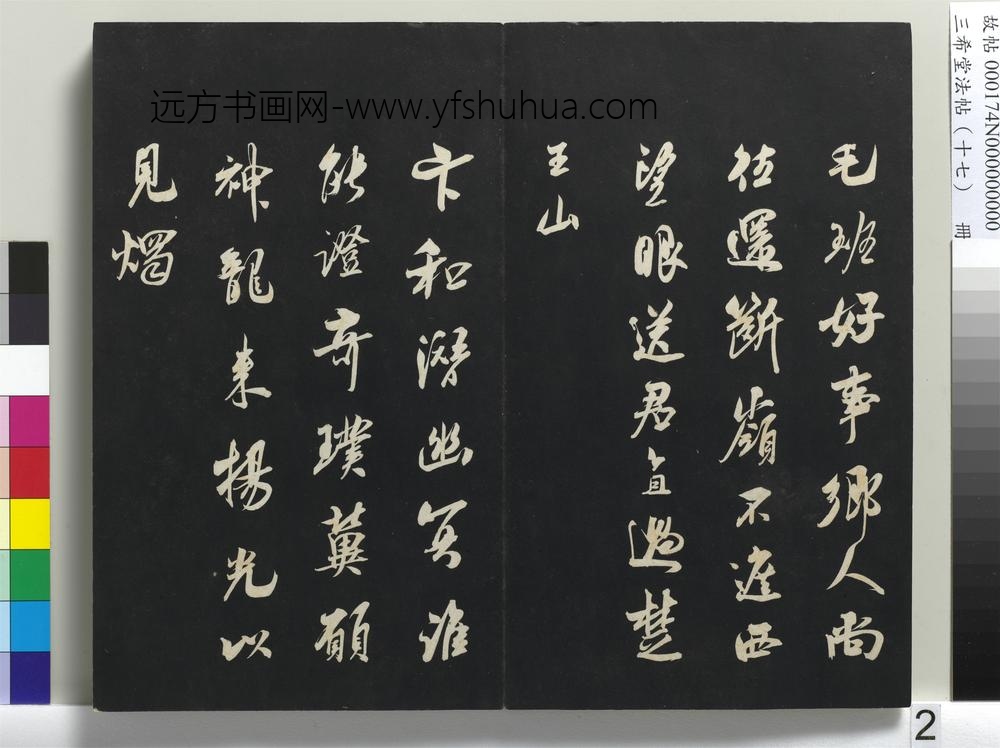 远方书画网-www.yfshuhua.com
毛班好事鄉人尚
往還斷嶺不遮西
望眼送君直過楚
王山
卞和潛幽冥誰
能證奇璞冀願
神龍來揚光以
見燭
故帖 000174N000000000
三希堂法帖(十七) 冊
2